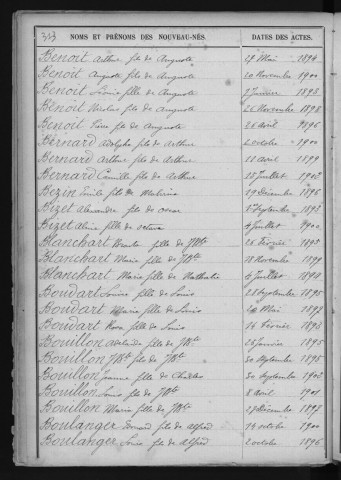 323
NOMS ET PRÉNOMS DES NOUVEAU-NÉS.
DATES DES ACTES.
Benoit Arthur fils de Auguste 29 Mai 1894
Benoit Auguste fils de Auguste 20 Novembre 1900
Benoit Louise fille de Auguste 9 Janvier 1893
Benoit Nicolas fils de Auguste 26 Novembre 1898
Benoit fils de Auguste 26 Avril 1896
Bernard Adolphe fils de Arthur 2 Octobre 1900
Bernard Arthur fils de Arthur 18 Avril 1899
Bernard Camille fils de Arthur 25 Juillet 1903
Bezin Emile fils de 29 Décembre 1896
Bizet Alexandre fils de Oscar Septembre 1893
Bizet Aline fille de Octave 4 Juillet 1900
Blanchart fille de JBte 26 Février 1895
Blanchart Marie fille de JBte 18 Novembre 1894
Blanchart Marie fille de Nathalie 4 Juillet 1894
Boudart Louise fille de Louis 28 Septembre 1895
Boudart Marie fille de Louis Mai 1897
Boudart Rosa fille de Louis 14 Février 1893
Bouillon Adelaïde fille de JBte 25 Janvier 1895
Bouillon JBte fils de JBte 30 Septembre 1895
Bouillon Jeanne fille de Charles 30 Septembre 1903
Bouillon Louis fils de JBte 8 Avril 1901
Bouillon Marie fille de JBte 29 Décembre 1897
Boulanger fils de Alfred 14 Octobre 1900
Boulanger Louis fils de Alfred 2 Octobre 1896